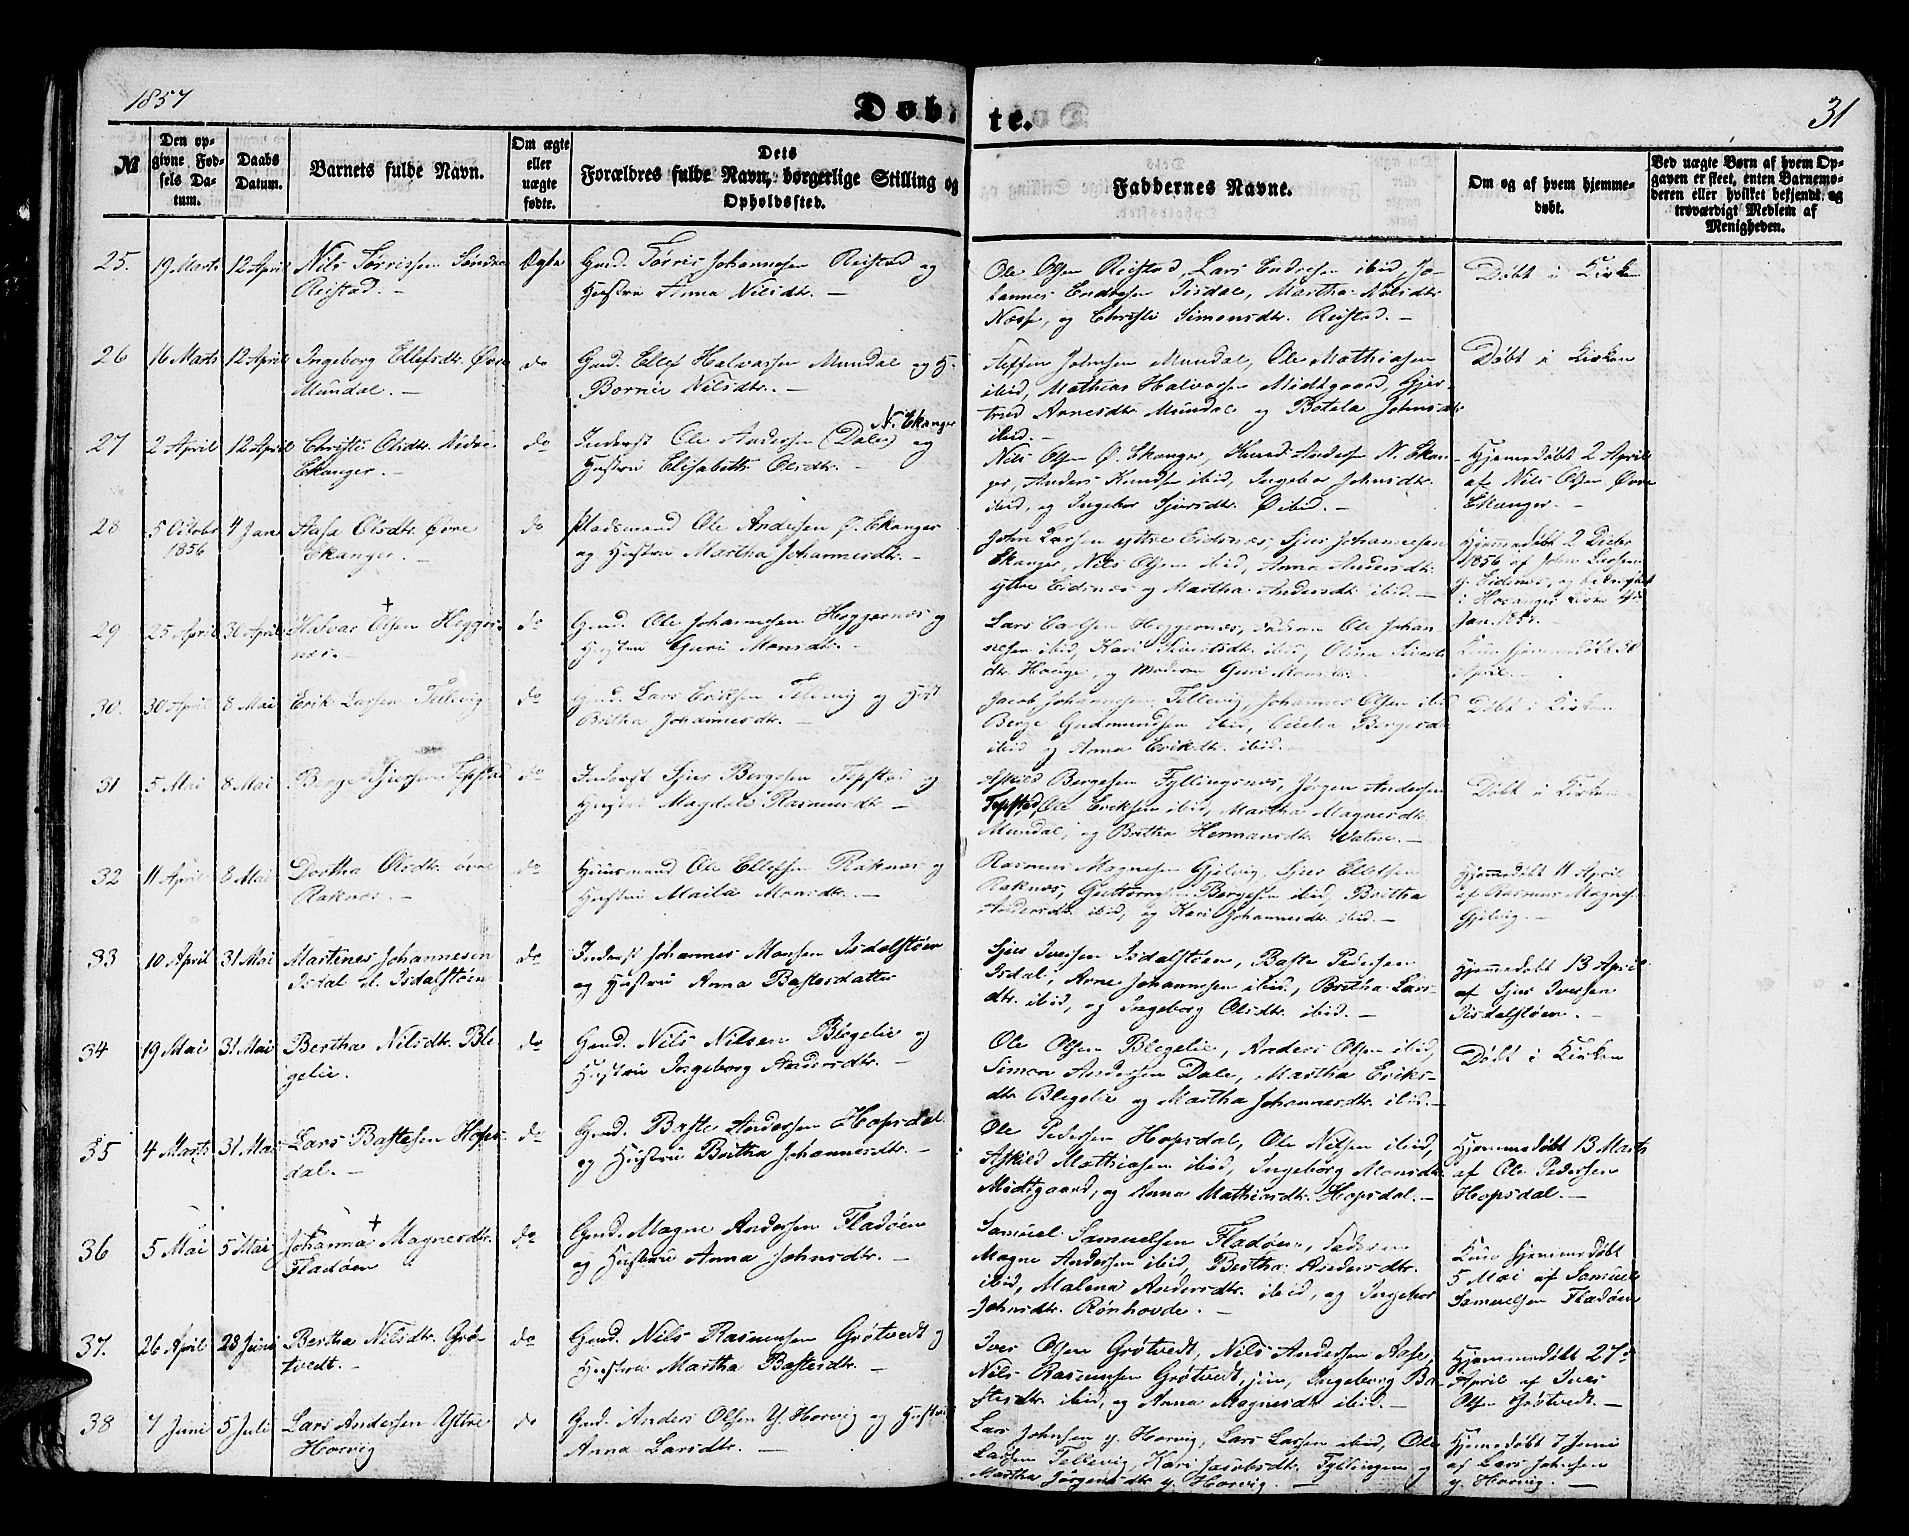 1857
Døbte.
31
№
Den opgivne Fødsels Datum.
Daabs Datum.
Barnets fulde Navn.
Om ægte eller uægte fødte.
Dets Forældres fulde Navn, borgerlige Stilling og Opholdssted.
Faddernes Navne.
Om og af hvem hjemmedøbt.
Ved uægte Børn af hvem Opgaven er skeet, enten Barnemoderen eller hvilket bekjendt og troværdigt Medlem af Menigheden.
25. 19 Marts 12 April Nils Tørrissen Søndre
Reistad. —
Ægte
Gmd. Tørris Johannesen Reistad og
Hustru Anna Nilsdtr. —
Ole Olsen Reistad, Lars Endresen ibid, Jo-
hannes Endresen Isdale, Martha Nilsdtr
Næsse, og Christi Simonsdtr. Reistad. —
Døbt i Kirken
26 16 Marts 12 April Ingeborg Ellefsdtr. Øvre
Mundal. —
do
Gmd. Ellef Halvorsen Mundal og H.
Bornie Nilsdtr. —
Steffen Johnsen Mundal, Ole Mathiasen
ibid, Mathias Halvorsen Midtgaard, Gjer-
trud Arnesdtr. Mundal og Botela Johnsdtr
ibid. —
Døbt i Kirken
27 2 April 12 April Christi Olsdtr. Nedre
Ekanger. —
do
N. Ekanger
Inderst Ole Andersen (Dale) og
Hustru Elisabeth Olsdtr. —
Nils Olsen Ø. Ekanger, Knud Andersen N. Ekan-
ger, Anders Knudsen ibid, Ingebor Johnsdtr.
ibid, og Ingebor Sjursdtr. Ø ibid. —
Hjemmedøbt 2 April
af Nils Olsen Øvre
Ekanger. —
28 5 Octobr 1856 4 Jan Aasa Olsdtr. Øvre
Ekanger. —
do
Pladsmand Ole Andersen Ø. Ekanger
og Hustru Martha Johannesdtr. —
John Larsen yttre Eidsnæs, Sjur Johannesen
Ekanger, Nils Olsen ibid, Anna Andersdtr.
yttre Eidsnæs og Martha Andersdtr ibid. —
Hjemmedøbt 2 Decbr
1856 af John Larsen
y. Eidsnæs, og
i Hosanger Kirke 4de
Jan. 1857. —
29 25 April 30 April Halvor + Olsen Hegger-
næs. —
do
Gmd. Ole Johannesen Heggernæs og
Hustru Guri Monsdtr. —
Lars Carlsen Heggernæs, Faderen Ole Johan-
nesen ibid, Kari Sivertsdtr. ibid, Olina Siverts-
dtr. Hauge, og Moderen Guri Monsdtr.
Kun hjemmedøbt 30
April. —
30. 30 April 8 Mai Erik Larsen Tellevig
do
Gmd. Lars Eriksen Tellevig og Hust.
Britha Johannesdtr. —
Jacob Johannesen Tellevig, Johannes Olsen ibid
Berge Gudmundsen ibid, Cecelia Bergesdtr
ibid og Anna Eriksdtr. ibid. —
Døbt i Kirken
31 5 Mai 8 Mai Berge Sjursen Tepstad
do
Inderst Sjur Bergesen Tepstad og
Hustru Magdele Rasmusdtr. —
Askild Bergesen Fyllingsnæs, Jørgen Andersen
Tepstad, Ole Eriksen ibid, Martha Magnesdtr.
Mundal, og Britha Hermansdtr. Watne. —
Døbt i Kirken
32 11 April 8 Mai Dortha Olsdtr. øvre
Raknæs. —
do
Huusmand Ole Ellefsen Raknæs og
Hustru Maila Monsdtr. —
Rasmus Magnesen Gjelvig, Sjur Ellefsen
Raknæs, Guttorm Bergesen ibid, Britha
Andersdtr. ibid, og Kari Johannesdtr. ibid. —
Hjemmedøbt 11 April
af Rasmus Magnes.
Gjelvig. —
33 10 April 31 Mai Martines Johannesen
Isdal el. Isdalstøen
do
Inderst Johannes Monsen Isdalstøen
og Hustru Anna Bastesdatter
Sjur Iversen Isdalstøen, Baste Pedersen
Isdal, Arne Johannesen ibid, Britha Lars-
dtr. ibid, og Ingeborg Olsdtr. ibid. —
Hjemmedøbt 13 April
af Sjur Iversen
Isdalstøen. —
34 19 Mai 31 Mai Bertha Nilsdtr. Ble-
gelie.
do
Gmd. Nils Nilsen Blegelie og
Hustru Ingeborg Andersdtr. —
Ole Olsen Blegelie, Anders Olsen ibid,
Simon Andersen Dale, Martha Eriks-
dtr Blegelie og Martha Johannesdtr. ibid. —
Døbt i Kirken
35 4 Marts 31 Mai Lars Bastesen Hops-
dal. —
do
Gmd. Baste Andersen Hopsdal
og Hustru Britha Johannesdtr. —
Ole Pedersen Hopsdal, Ole Nilsen ibid,
Askild Mathiasen ibid, Ingeborg Monsdtr
Midtgaard, og Anna Mathiasdtr. Hopsdal. —
Hjemmedøbt 13 Marts
af Ole Pedersen
Hopsdal. —
36 5 Mai 5 Mai Johanna + Magnesdtr.
Fladøen
do
Gmd. Magne Andersen Fladøen
og Hustru Anna Johnsdtr. —
Samuel Samuelsen Fladøen, Faderen
Magne Andersen ibid, Bertha Andersdtr.
ibid, Malena Andersdtr. ibid, og Ingebor
Johnsdtr. Rønhovde. —
Kun hjemmedøbt
5 Mai af Samuel
Samuelsen Fladøen
37. 26 April 28 Juni Bertha Nilsdtr. Grø-
tvedt. —
do
Gmd. Nils Rasmusen Grøtvedt og
Hustru Martha Bastesdtr. —
Iver Olsen Grøtvedt, Nils Andersen Aase,
Nils Rasmusen Grøtvedt, jun, Ingeborg Ba-
stesdtr ibid, og Anna Magnesdtr ibid. —
Hjemmedøbt 27de
April af Iver
Olsen Grøtvedt. —
38 7 Juni 5 Juli Lars Andersen Yttre
Horvig
do
Gmd. Anders Olsen Y. Horvig og Hustru
Anna Larsdtr. —
Lars Johnsen y. Horvig, Lars Larsen ibid, Ole
Larsen Tellevig, Kari Jacobsdtr. Fyllingen og
Martha Jørgensdtr y. Horvig. —
Hjemmedøbt 7 Juni
af Lars Johnsen
y. Horvig. —